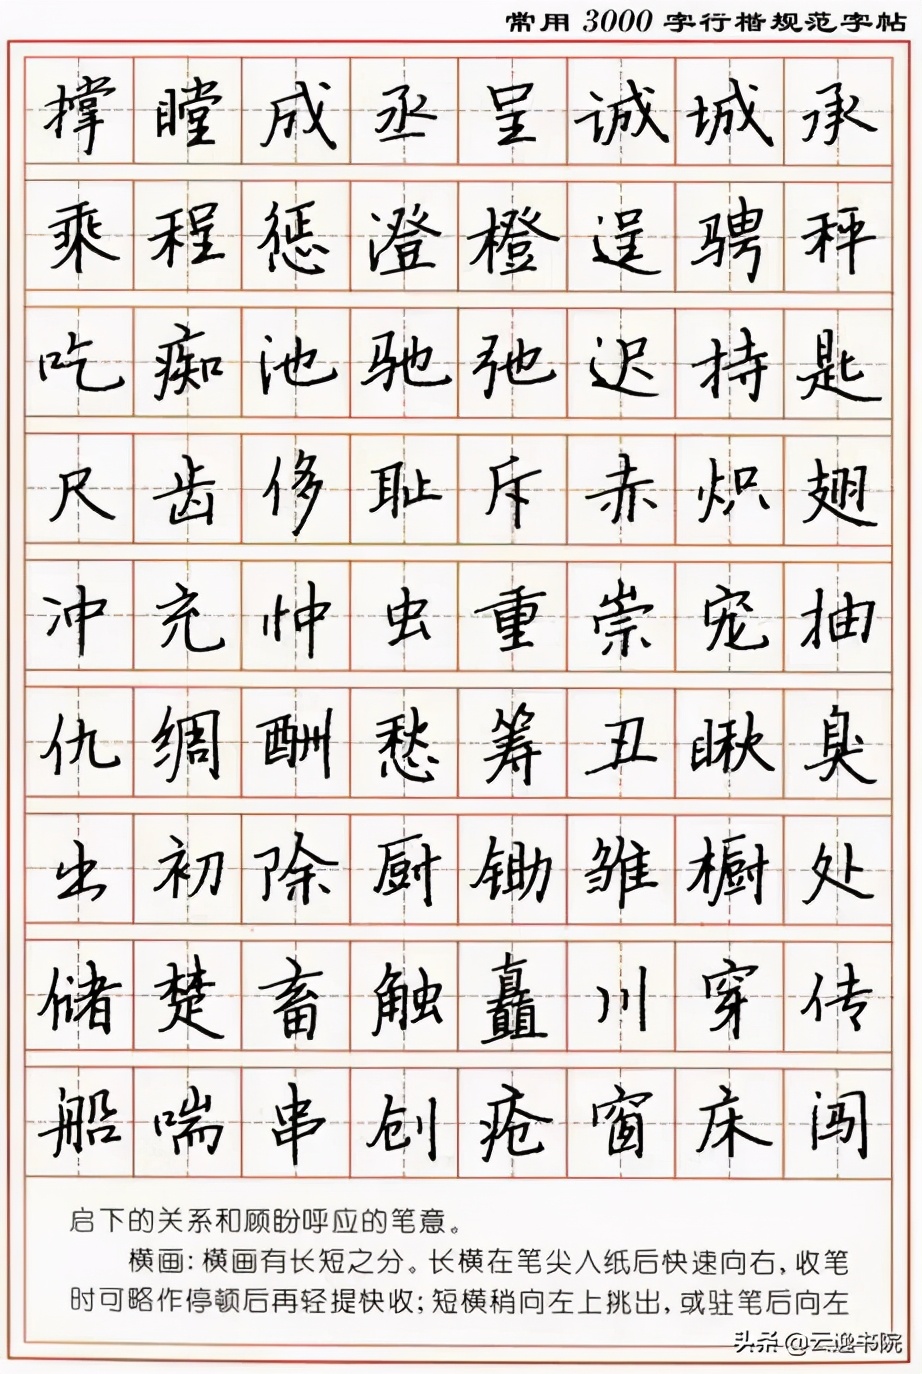 常用3000字行楷规范字帖
撑瞠成丞呈诚城承
乘程惩澄橙逞骋秤
吃痴池驰弛迟持匙
尺齿侈耻斥赤炽翅
冲充忡虫重崇宠抽
仇绸酬愁筹丑瞅臭
出初除厨锄雏橱处
储楚畜触矗川穿传
船喘串创疮窗床闯
启下的关系和顾盼呼应的笔意。
横画：横画有长短之分。长横在笔尖入纸后快速向右，收笔
时可略作停顿后再轻提快收；短横稍向左上挑出，或驻笔后向左
头条@云逸书院